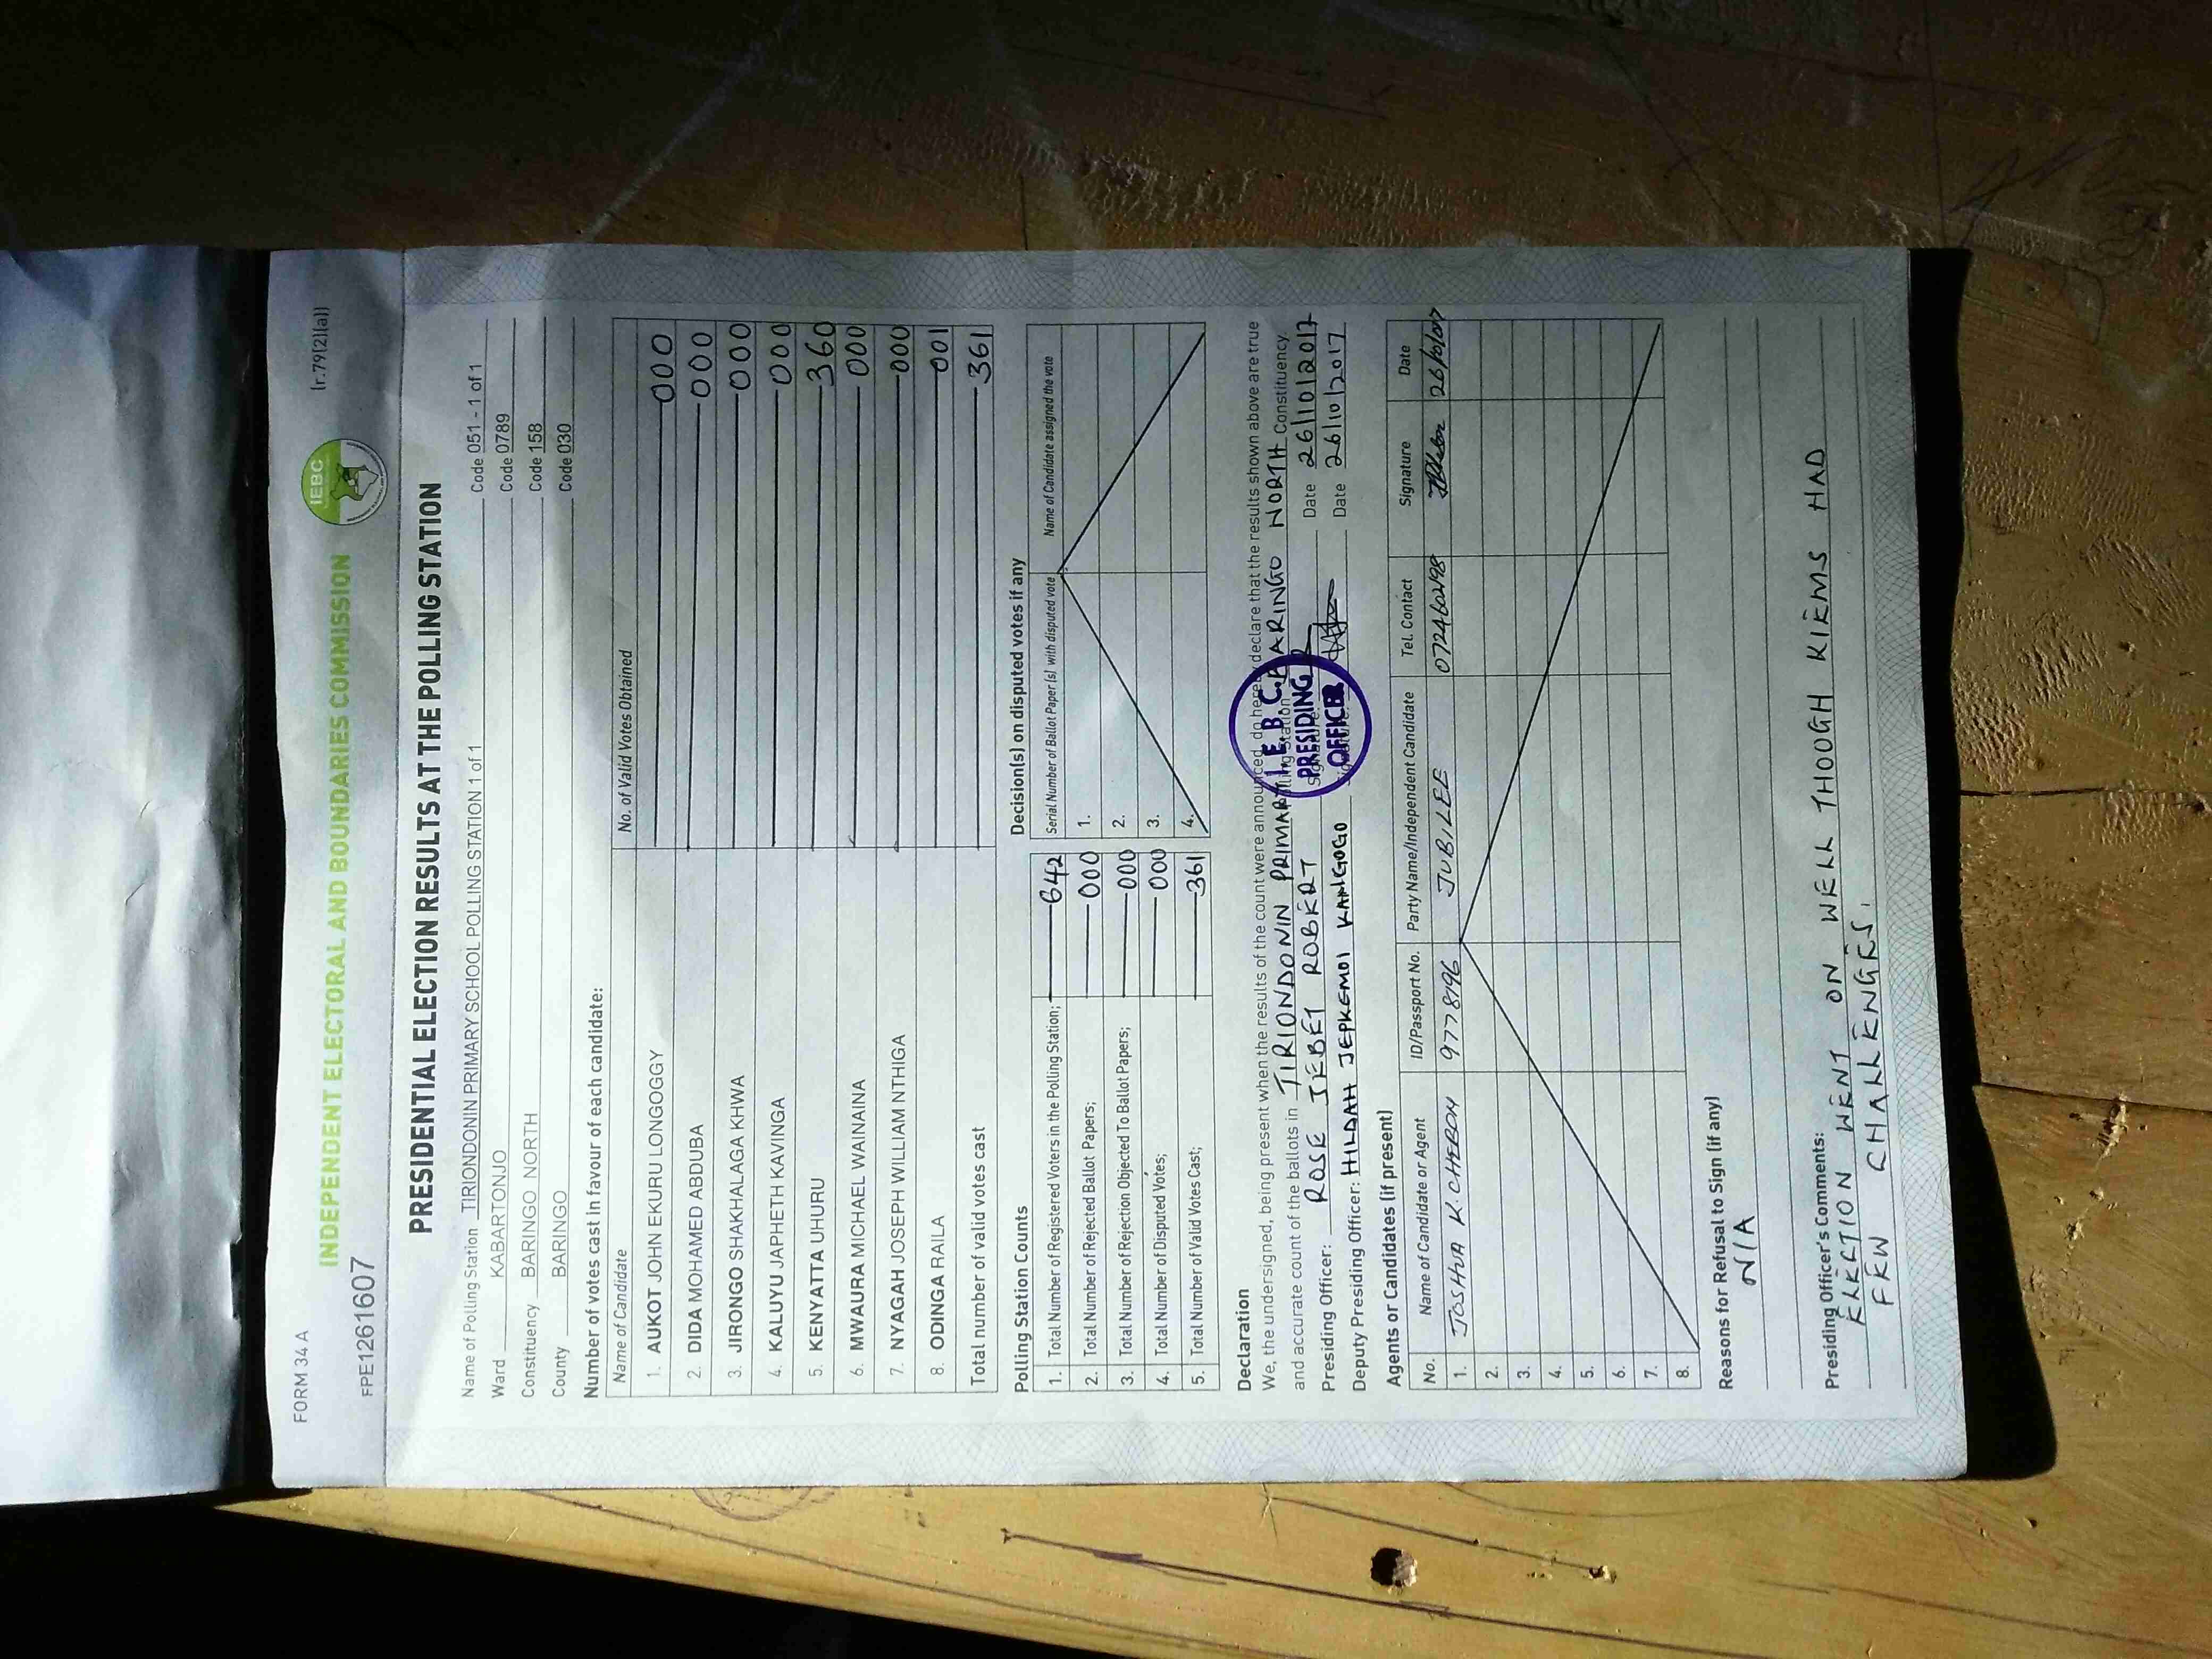 FORM 34 A
(r.79(2)(a))
INDEPENDENT ELECTORAL AND BOUNDARIES COMMISSION
IEBC
FPE1261607
PRESIDENTIAL ELECTION RESULTS AT THE POLLING STATION
Name of Polling Station TIRIONDONIN PRIMARY SCHOOL POLLING STATION 1 of 1 Code 051 - 1 of 1
Ward KABARTONJO Code 0789
Constituency BARINGO NORTH Code 158
County BARINGO Code 030
Number of votes cast in favour of each candidate:
Name of Candidate No. of Valid Votes Obtained
1. AUKOT JOHN EKURU LONGOGGY 000
2. DIDA MOHAMED ABDUBA 000
3. JIRONGO SHAKHALAGA KHWA 000
4. KALUYU JAPHETH KAVINGA 000
5. KENYATTA UHURU 360
6. MWAURA MICHAEL WAINAINA 000
7. NYAGAH JOSEPH WILLIAM NTHIGA 000
8. ODINGA RAILA 001
Total number of valid votes cast 361
Polling Station Counts
1. Total Number of Registered Voters in the Polling Station; 642
2. Total Number of Rejected Ballot Papers; 000
3. Total Number of Rejection Objected To Ballot Papers; 000
4. Total Number of Disputed Votes; 000
5. Total Number of Valid Votes Cast; 361
Decision(s) on disputed votes if any
Serial Number of Ballot Paper (s) with disputed vote Name of Candidate assigned the vote
1.
2.
3.
4.
Declaration
We, the undersigned, being present when the results of the count were announced, do hereby declare that the results shown above are true
and accurate count of the ballots in TIRIONDONIN PRIMARY Polling Station BARINGO NORTH Constituency.
Presiding Officer: ROSE JEBET ROBERT Date 26/10/2017
Deputy Presiding Officer: HILDAH JEPKEMOI KANGOGO Date 26/10/2017
I.E.B.C.
PRESIDING
OFFICER
Agents or Candidates (if present)
No. Name of Candidate or Agent ID/Passport No. Party Name/Independent Candidate Tel. Contact Signature Date
1. JOSHUA K. CHEBON 9778196 JUBILEE
2.
3.
4.
5.
6.
7.
8.
Reasons for Refusal to Sign (if any)
N/A
Presiding Officer's Comments:
ELECTION WENT ON WELL THOUGH KIEMS HAD
FEW CHALLENGES.